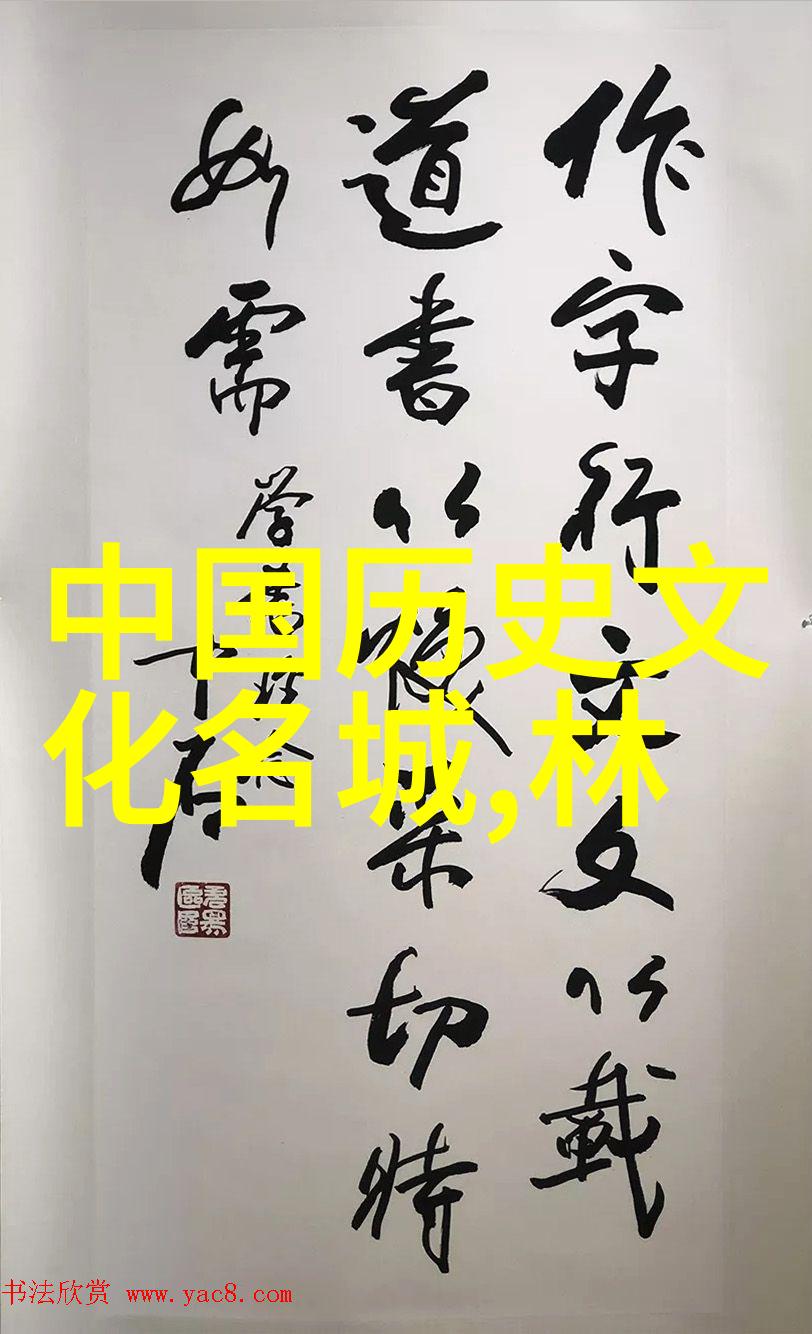 作字行文文以載
道書以焕采切時
如需
中国历史文
化名城,林
书法欣赏 www.yac8.com